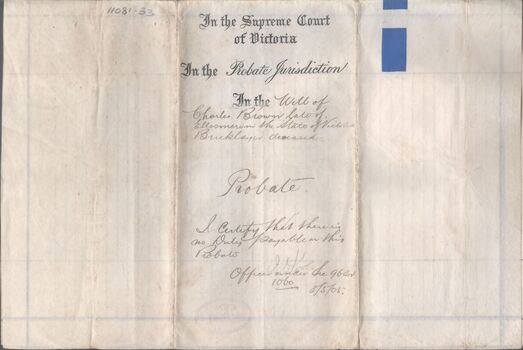 11081-33
In the Supreme Court
of Victoria
In the Probate Jurisdiction
In the Will of
Charles Brown late of
in the State of Victoria
Bricklayer deceased
Probate.
I Certify that there is
no Duty payable on this
Probate
Officer under the Act
1060
5/5/05.